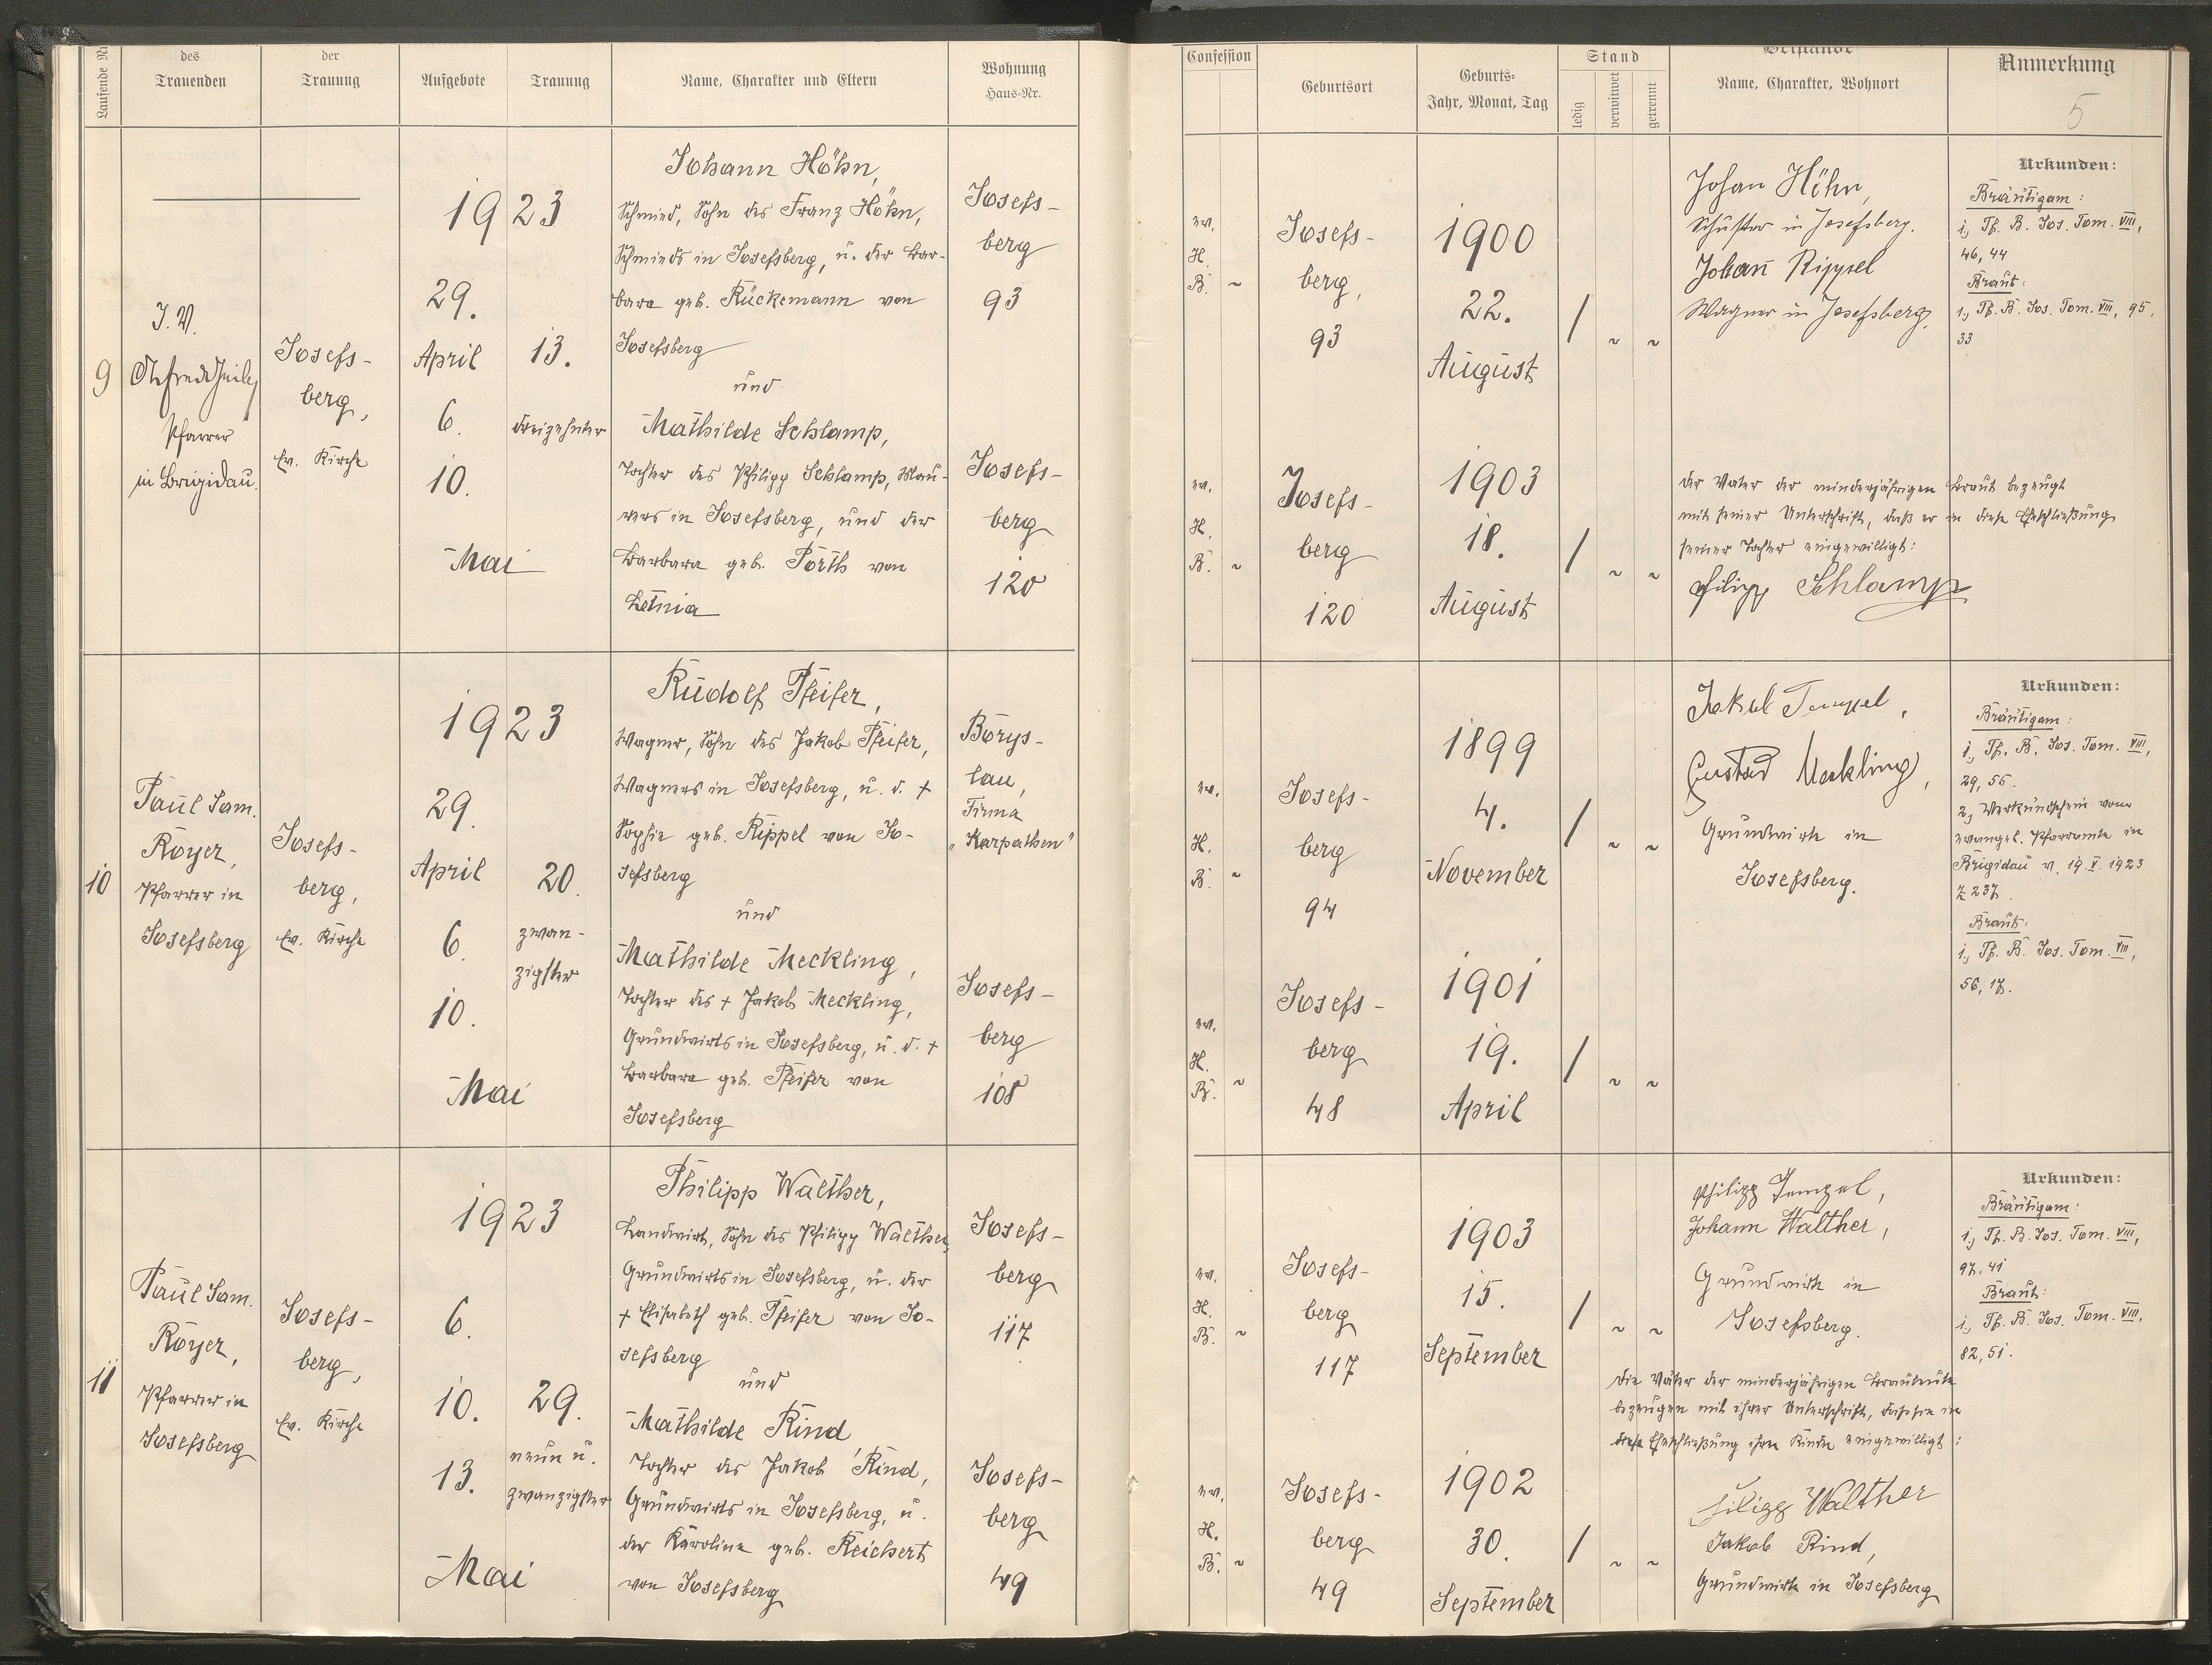 Laufende Nr.
des
Trauenden
der
Trauung
Aufgebote
Trauung
Name, Charakter und Eltern
Wohnung
Haus=Nr.
Confession
Geburtsort
Geburts=
Jahr, Monat, Tag
Stand
ledig
verwitwet
getrennt
Beistände
Name, Charakter, Wohnort
Anmerkung
5
9
I. V.
Pfarrer
in Brigidau.
Josefs-
berg,
Ev. Kirche
1923
29.
April
6.
10.
Mai
13.
dreizehnter
Johann Höhn,
Schmied, Sohn des Franz Höhn,
Schmieds in Josefsberg, u. der Bar-
bara geb. Rückemann von
Josefsberg
und
Mathilde Schlamp,
Tochter des Philipp Schlamp, Mau-
rers in Josefsberg, und der
Barbara geb. Porth von
Letnia
Josefs-
berg
93
Josefs-
berg
120
ev.
H.
B. ~
Josefs-
berg,
93
1900
22.
August
/ ~ ~
Johan Höhn,
Schuster in Josefsberg.
Johan̄ Rippel
Wagner in Josefsberg,
Urkunden:
Bräutigam:
1, Tf. B. Jos. Tom. VIII,
46, 44
Braut:
1, Tf. B. Jos. Tom. VIII, 95,
33
ev.
H.
B. ~
Josefs-
berg
120
1903
18.
August
/ ~ ~
der Vater der minderjährigen Braut bezeugt
mit seiner Unterschrift, daß er in diese Eheschließung
seiner Tochter eingewilligt:
Filipp Schlamp
10
Paul Sam.
Royer,
Pfarrer in
Josefsberg
Josefs-
berg,
Ev. Kirche
1923
29.
April
6.
10.
Mai
20.
zwan-
zigster
Rudolf Pfeifer,
Wagner, Sohn des Jakob Pfeifer,
Wagners in Josefsberg, u. d. +
Sophie geb. Rippel von Jo-
sefsberg
und
Mathilde Meckling,
Tochter des + Jakob Meckling,
Grundwirts in Josefsberg, u. d. +
Barbara geb. Pfeifer von
Josefsberg
Borys-
lau,
Firma
„Karpathen"
Josefs-
berg
108
ev.
H.
B. ~
Josefs-
berg
94
1899
4.
November
/ ~ ~
Jakob Tempel,
Gustav Meckling,
Grundwirte in
Josefsberg.
Urkunden:
Bräutigam:
1, Tf. B. Jos. Tom. VIII,
29, 55.
2, Verkündschein vom
evangel. Pfarramte in
Brigidau v. 19. V. 1923
Z 237.
Braut:
1, Tf. B. Jos. Tom. VIII,
56, 17.
ev.
H.
B. ~
Josefs-
berg
48
1901
19.
April
/ ~ ~
11
Paul Sam.
Royer,
Pfarrer in
Josefsberg
Josefs-
berg,
Ev. Kirche
1923
6.
10.
13.
Mai
29.
neun u.
zwanzigster
Philipp Walther,
Landwirt, Sohn des Philipp Walther,
Grundwirts in Josefsberg, u. der
+ Elisabeth geb. Pfeifer von Jo-
sefsberg
und
Mathilde Rind
Tochter des Jakob Rind,
Grundwirts in Josefsberg, u.
der Karoline geb. Reichert
von Josefsberg
Josefs-
berg
117
Josefs-
berg
49
ev.
H.
B. ~
Josefs-
berg
117
1903
15.
September
/ ~ ~
Philipp Tempel,
Johann Walther,
Grundwirte in
Josefsberg.
Urkunden:
Bräutigam:
1, Tf. B. Jos. Tom. VIII,
97, 41
Braut:
1, Tf. B. Jos. Tom. VIII,
82, 51.
Die Väter der minderjährigen Brautleute
bezeugen mit ihrer Unterschrift, daß sie in
diese Eheschließung ihrer Kinder eingewilligt:
ev.
H.
B. ~
Josefs-
berg
49
1902
30.
September
/ ~ ~
Filipp Walther
Jakob Rind,
Grundwirte in Josefsberg